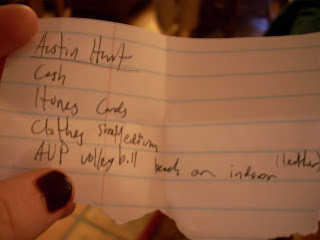 Austin Hurt
Cash
Itunes Cards
Clothes small/medium
AVP volleybill beach or indoor (leather)